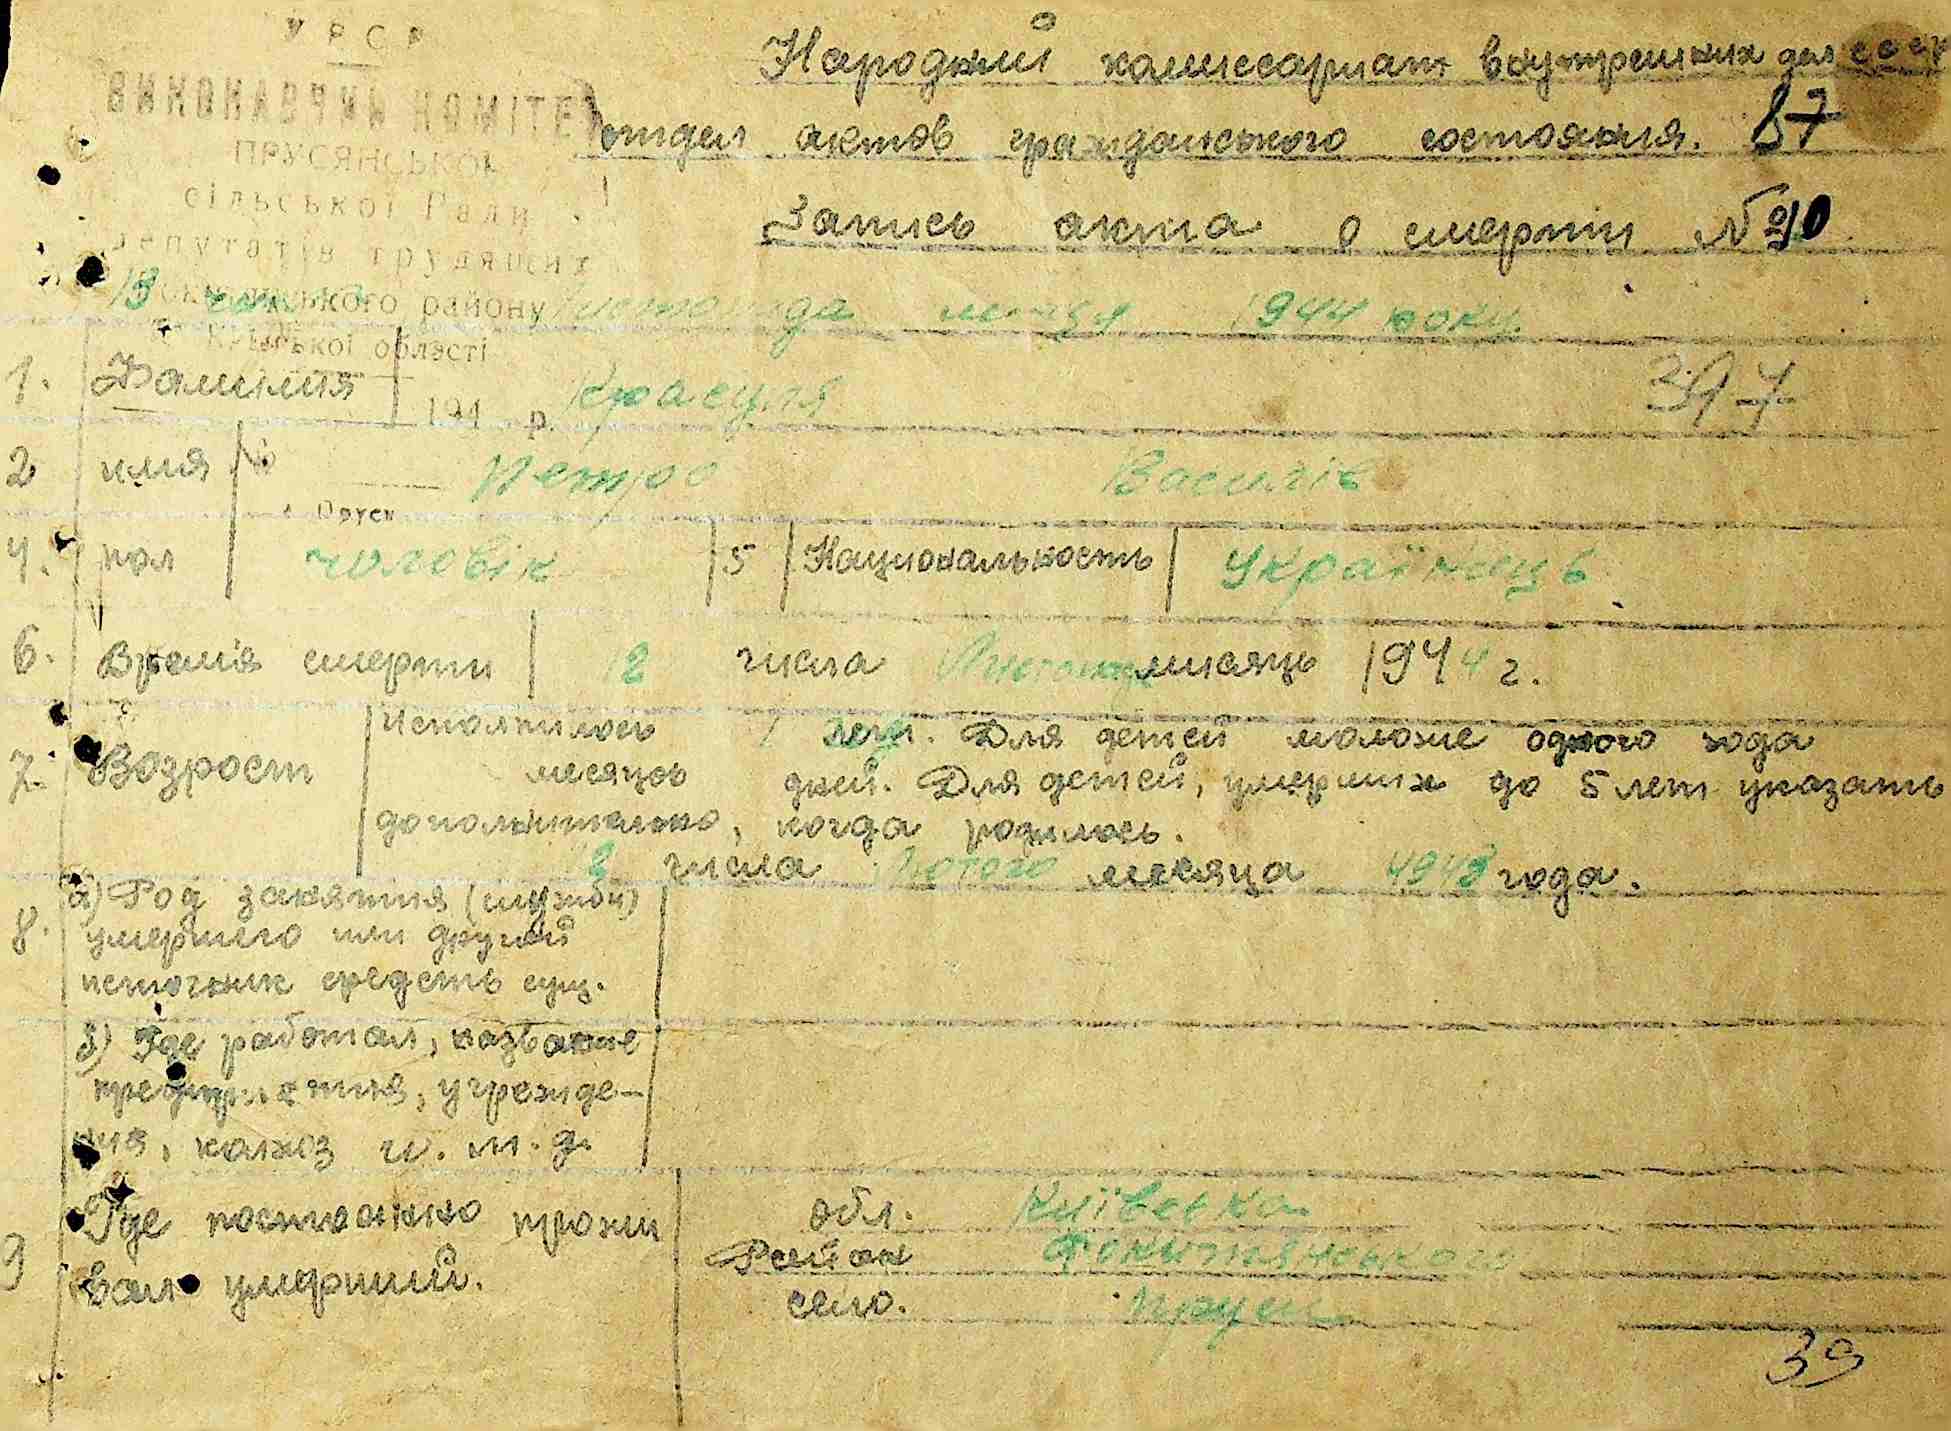 УРСР
ВИКОНАВЧИЙ КОМІТЕТ
ПРУСЯНСЬКОЇ
сільської Ради
депутатів трудящих
району
Київської області
194 р.
Народний комиссариат внутрених дел СССР
отдел актов гражданського состояния. 57
Запись акта о смерти №
19 числа листопада месяця 1944 року
1. Фамилия Красуля 397
2 имя Петро Василів
4. пол чоловік 5 Националькость Українець
6. Время смерти 12 числа мисяць 1944 г.
7. Возрост Исполнилось 1 лет. Для детей моложе одного года
месяцов дней. Для детей, умерших до 5 лет указать
дополнительно, когда родилось.
2 числа Лютого месяца 1943 года.
8. а) Род занятия (службы)
умершего или другой
источник средств сущ.
б) Где работал, название
предприятия, учрежде-
ния, колхоз и. т. д.
9 Где постоянно прожи
вал умерший.
обл. Київська
Район
село. Пруси
39